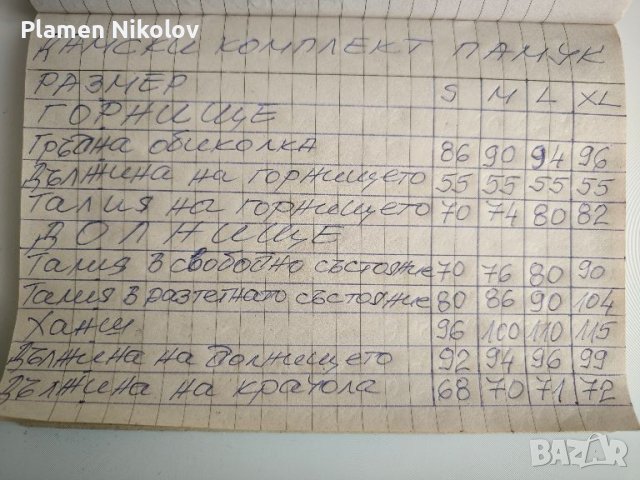 Plamen Nikolov
ДАМСКИ КОМПЛЕКТ ПАМУК
РАЗМЕР S M L XL
ГОРНИЩЕ
Гръдна обиколка 86 90 94 96
Дължина на горнището 55 55 55 55
Талия на горнището 70 74 80 82
ДОЛНИЩЕ
Талия в свободно състояние 70 76 80 90
Талия в разтегнато състояние 80 86 90 104
Ханш 96 100 110 115
Дължина на долнището 92 94 96 99
Дължина на крачола 68 70 71 72
BAZAR